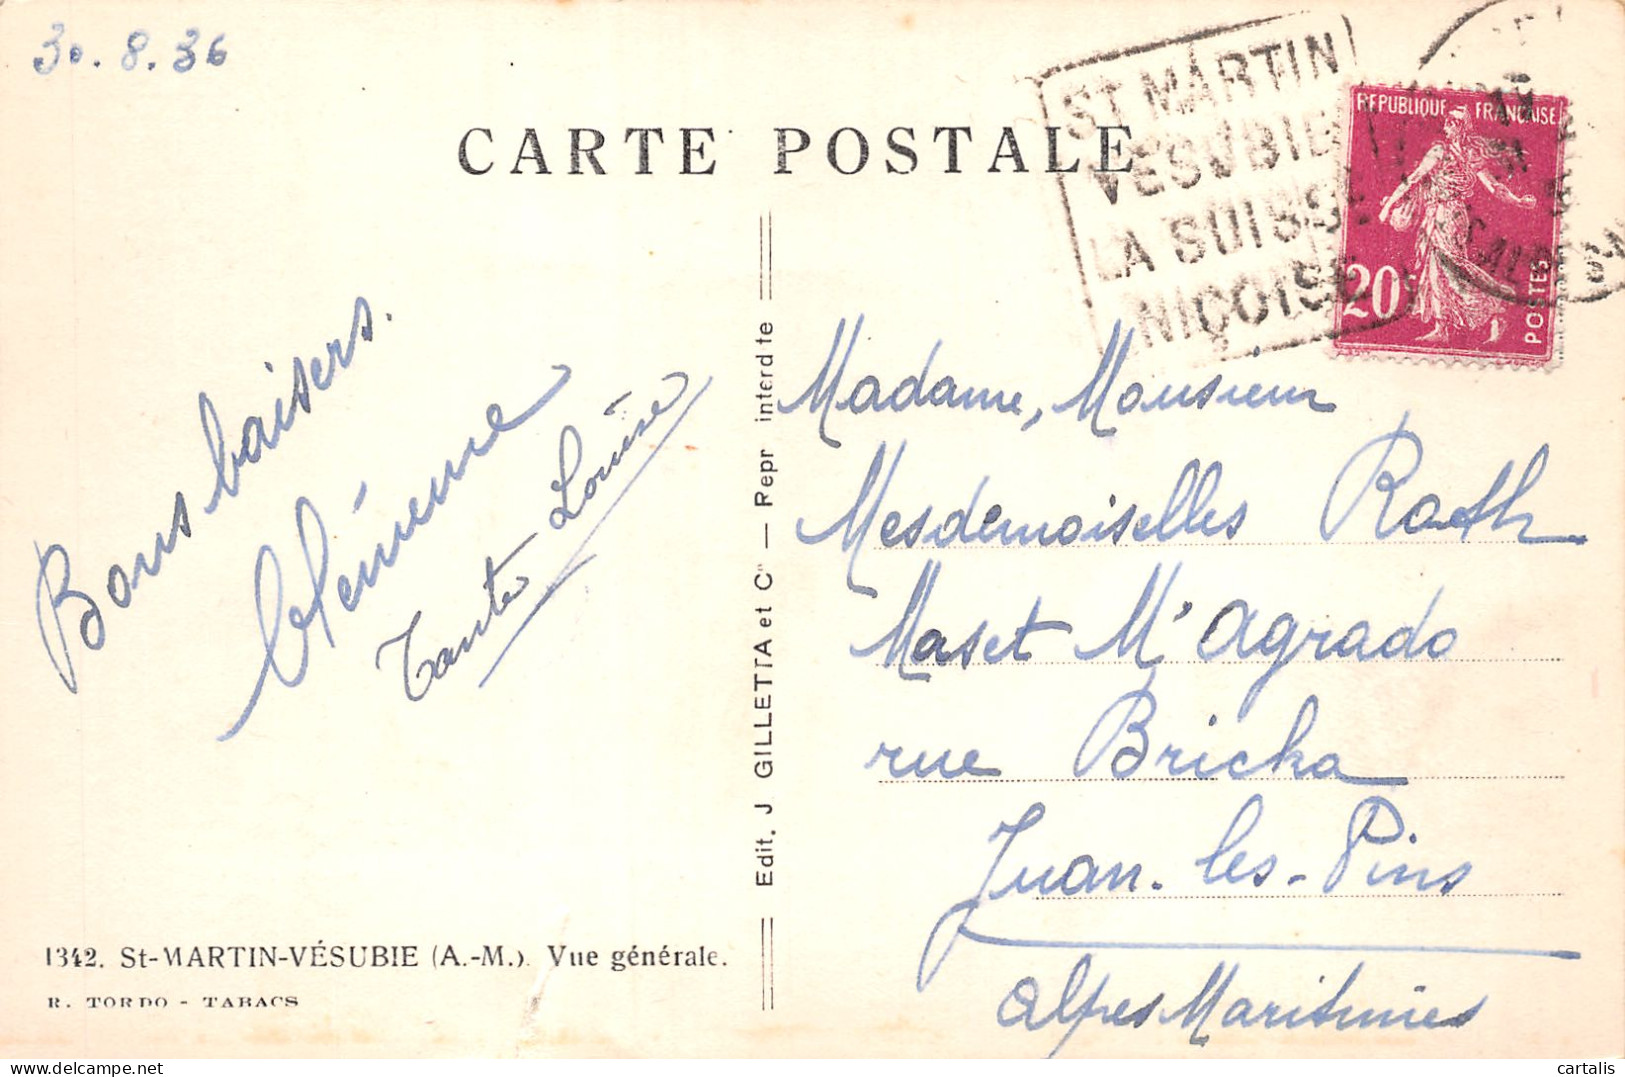 30.8.36
CARTE POSTALE
ST MARTIN
VESUBIE
LA SUISSE
NIÇOISE
REPUBLIQUE FRANÇAISE
20c
POSTES
Bons baisers.
Clémence
Tante Louise
Edit. J GILLETTA et Cie — Repr interdite
Madame, Monsieur
Mesdemoiselles Roth
Maset M'agrado
rue Bricka
Juan-les-Pins
Alpes Maritimes
1342. St-MARTIN-VÉSUBIE (A.-M.). Vue générale.
R. TORDO - TABACS
cartalis